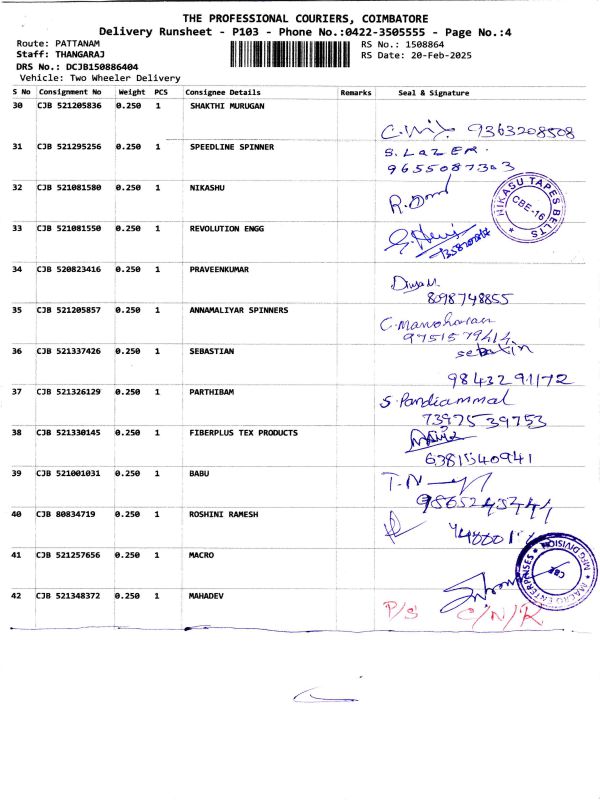 THE PROFESSIONAL COURIERS, COIMBATORE
Delivery Runsheet - P103 - Phone No.:0422-3505555 - Page No.:4
Route: PATTANAM
RS No.: 1508864
Staff: THANGARAJ
RS Date: 20-Feb-2025
DRS No.: DCJB150886404
Vehicle: Two Wheeler Delivery
S No Consignment No Weight PCS Consignee Details Remarks Seal & Signature
30 CJB 521205836 0.250 1 SHAKTHI MURUGAN
9363208508
31 CJB 521295256 0.250 1 SPEEDLINE SPINNER S. LAZER.
9655087303
32 CJB 521081580 0.250 1 NIKASHU
NIKASU TAPES BELTS
CBE-16
33 CJB 521081550 0.250 1 REVOLUTION ENGG
34 CJB 520823416 0.250 1 PRAVEENKUMAR
8098748855
35 CJB 521205857 0.250 1 ANNAMALIYAR SPINNERS C. Manoharan
9751579414
36 CJB 521337426 0.250 1 SEBASTIAN
9843291172
37 CJB 521326129 0.250 1 PARTHIBAM S. Pandiammal
7397539753
38 CJB 521330145 0.250 1 FIBERPLUS TEX PRODUCTS
6381540941
39 CJB 521001031 0.250 1 BABU T.N
40 CJB 80834719 0.250 1 ROSHINI RAMESH
41 CJB 521257656 0.250 1 MACRO
MACRO ENTERPRISES
MFG DIVISION
CBE
42 CJB 521348372 0.250 1 MAHADEV P/S C/N/R